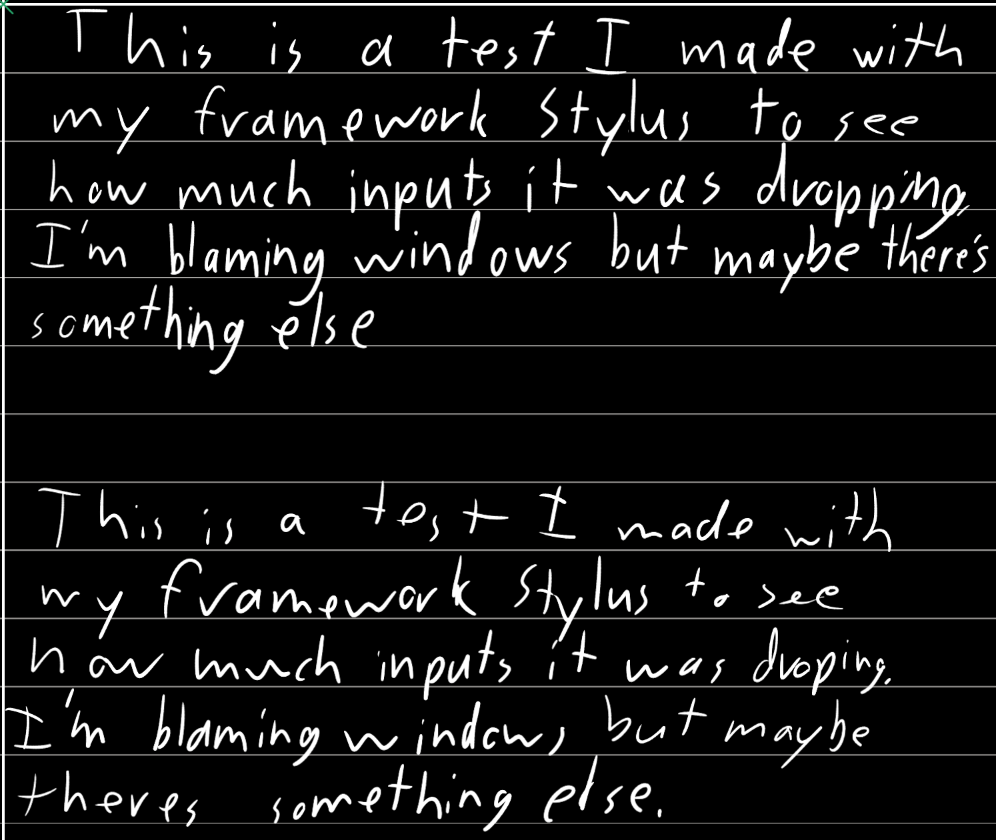 This is a test I made with
my framework stylus to see
how much inputs it was dropping,
I'm blaming windows but maybe there's
something else
This is a test I made with
my framework stylus to see
how much inputs it was droping.
I'm blaming windows but maybe
theres something else.